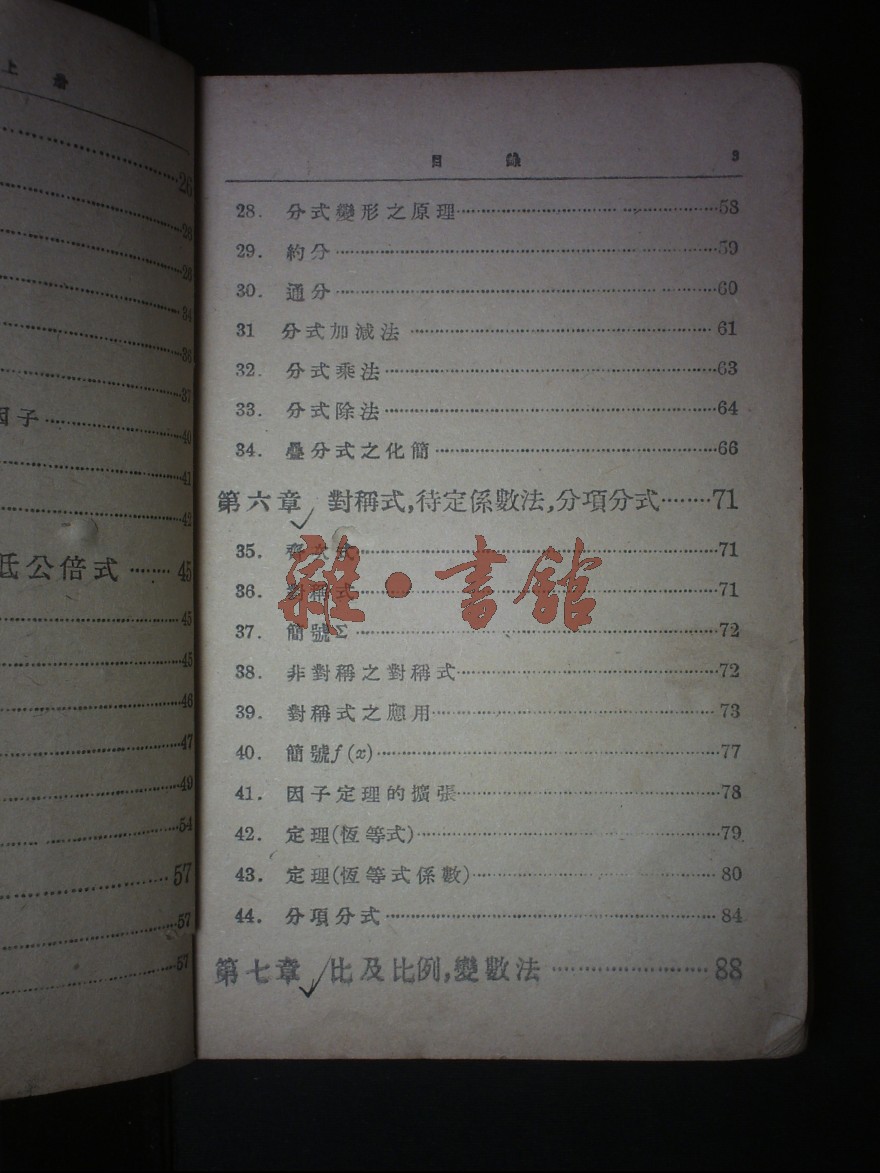 上卷
26
28
28
34
36
37
因子 40
41
42
低公倍式 45
45
45
46
47
49
54
57
57
57
目錄 3
28. 分式變形之原理 58
29. 約分 59
30. 通分 60
31 分式加減法 61
32. 分式乘法 63
33. 分式除法 64
34. 疊分式之化簡 66
第六章 對稱式,待定係數法,分項分式 71
35. 齊次式 71
36. 對稱式 71
37. 簡號Σ 72
38. 非對稱之對稱式 72
39. 對稱式之應用 73
40. 簡號f(x) 77
41. 因子定理的擴張 78
42. 定理(恆等式) 79
43. 定理(恆等式係數) 80
44. 分項分式 84
第七章 比及比例,變數法 88
雜·書館